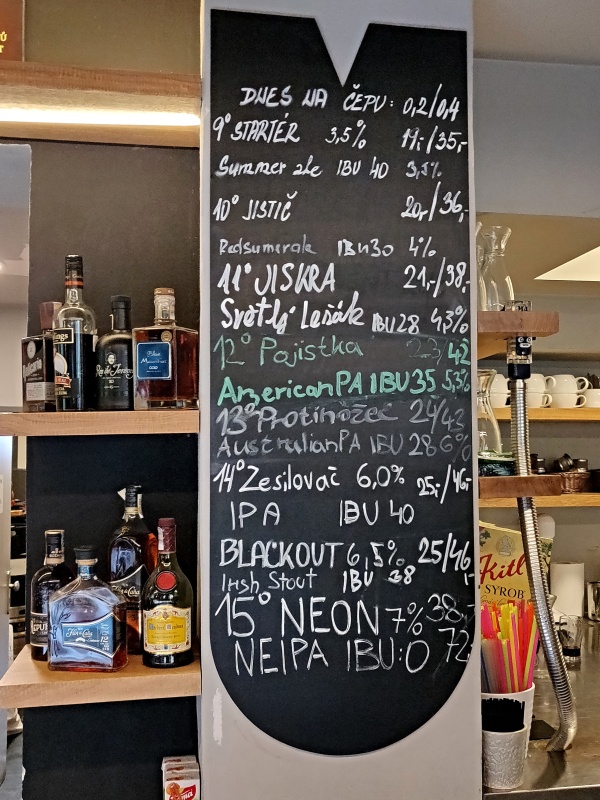 DNES NA ČEPU: 0,2/0,4
9° STARTÉR 3,5% 19,-/35,-
Summer ale IBU 40 3,5%
10° JISTIČ 20,-/36,-
Redsumerale IBU30 4%
11° JISKRA 21,-/38,-
Světlý Ležák IBU 28 4,3%
12° Pojistka 23/42
AmericanPA IBU35 5,3%
13° Protinožec 24/43
AustralianPA IBU 28 6%
14° Zesilovač 6,0% 25,-/46,-
IPA IBU 40
BLACKOUT 6,5% 25/46
Irish Stout IBU 38
15° NEON 7% 38,-
NEIPA IBU:0 72,-
Kitl
SYROB